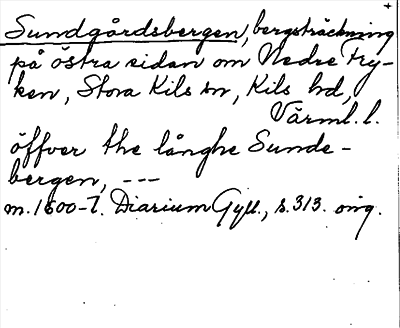 Sundgårdsbergen, bergsträckning
på östra sidan om Nedre Fry-
ken, Stora Kils sn, Kils hd,
Värml. l.
öffver the långhe Sunde-
bergen, ---
m. 1600-t. Diarium Gyll., s. 313. orig.